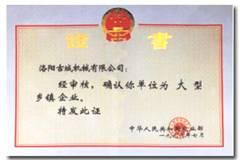 证书
洛阳古城机械有限公司：
经审核，确认你单位为大型
乡镇企业。
特发此证
中华人民共和国农业部